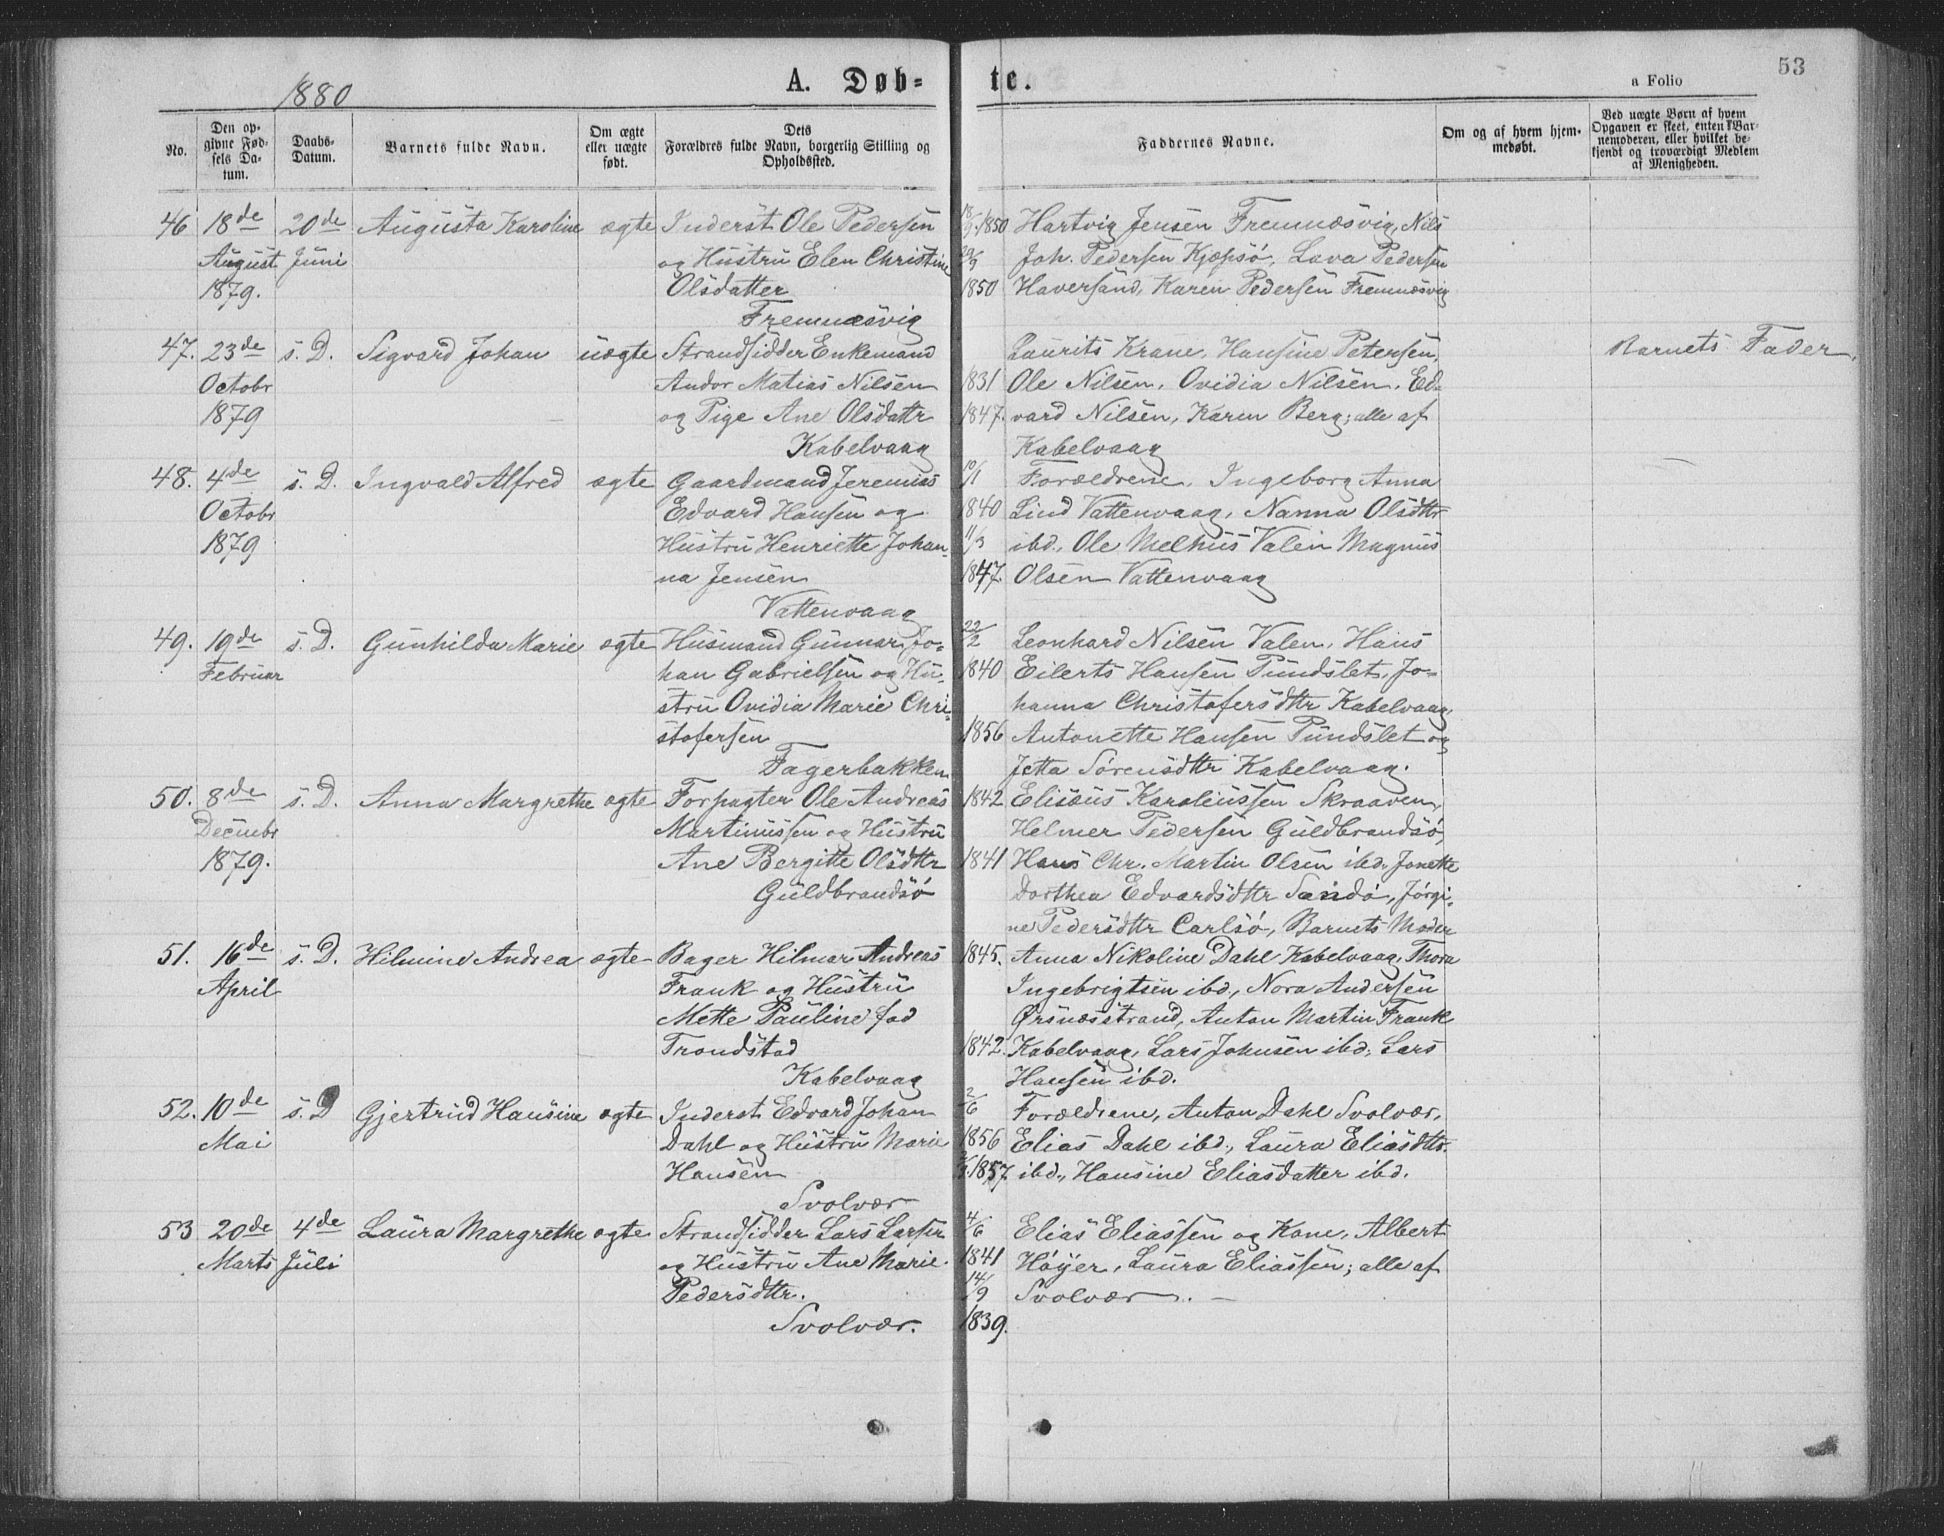 1880
A. Døb= te.
a Folio
53
No.
Den op-
givne Fød-
sels Da-
tum.
Daabs-
Datum.
Barnets fulde Navn.
Om ægte
eller uægte
født.
Dets
Forældres fulde Navn, borgerlig Stilling og
Opholdssted.
Faddernes Navne.
Om og af hvem hjem-
medøbt.
Ved uægte Børn af hvem
Opgaven er skeet, enten Bar-
nemoderen, eller hvilket be-
kjendt og troværdigt Medlem
af Menigheden.
46 18de 20de Augusta Karoline ægte Inderst Ole Pedersen 1850 Hartvig Jensen Fremnæsvig, Nils
August Juni og Hustru Elen Christine Joh. Pedersen Kjøpsø, Lava Pedersen
1879. Olsdatter 1850 Haversand, Karen Pedersen Fremnæsvig
Fremnæsvig
47. 23de s. D. Sigvard Johan uægte Strandsidder Enkemand Laurits Krane, Hansine Petersen, Barnets Fader.
Octobr Andor Matias Nilsen 1831 Ole Nilsen, Ovidia Nilsen, Ed-
1879 og Pige Ane Olsdattr 1847. vard Nilsen, Karen Berg; alle af
Kabelvaag Kabelvaag
48. 4de s. D. Ingvald Alfred ægte Gaardmand Jeremias 10/1 Forældrene, Ingeborg Anna
Octobr Edvard Hansen og 1840 Lind Vattenvaag, Nanna Olsdttr
1879 Hustru Henriette Johan- 11/3 ibd., Ole Melhus Valen Magnus
na Jensen 1847. Olsen Vattenvaag
Vattenvaag
49. 19de s. D. Gunhilda Marie ægte Husmand Gunnar Jo- 22/2 Leonhard Nilsen Valen, Hans
Februar han Gabrielsen og Hu- 1840 Eilerts Hansen Pundslet, Jo-
stru Ovidia Marie Chri- hanna Christofersdttr Kabelvaag,
stofersen 1856 Antonette Hansen Pundslet og
Fagerbakken Jetta Sørensdttr Kabelvaag.
50. 8de s. D. Anna Margrethe ægte Forpagter Ole Andreas 1842 Elisæus Karoliussen Skraaven,
Decembr Martinussen og Hustru Helmer Pedersen Guldbrandsø,
1879. Ane Bergitte Olsdttr 1841 Hans Chr. Martin Olsen ibd. Jonette
Guldbrandsø Dorthea Edvardsdttr Sandø, Jørgi-
ne Pedersdttr Carlsø, Barnets Moder
51. 16de s. D. Hilmine Andrea ægte Bager Hilmar Andreas 1845. Anna Nikoline Dahl Kabelvaag, Thora
April Frank og Hustru Ingebrigtsen ibd., Nora Andersen
Mette Pauline fød Ørsnæsstrand, Anton Martin Frank
Trondstad 1842. Kabelvaag, Lars Johnsen ibd. Lars
Kabelvaag Hansen ibd.
52. 10de s. D Gjertrud Hansine ægte Inderst Edvard Johan 2/6 Forældrene, Anton Dahl Svolvær,
Mai Dahl og Hustru Marie 1856 Elias Dahl ibd., Laura Eliasdttr.
Hansen 1857. ibd., Hansine Eliasdatter ibd.
Svolvær
53 20de 4de Laura Margrethe ægte Strandsidder Lars Larsen 4/6 Elias Eliassen og Kone, Albert
Marts Juli og Hustru Ane Marie 1841 Høyer, Laura Eliassen; alle af
Pedersdttr. 14/9 Svolvær.
Svolvær. 1839.